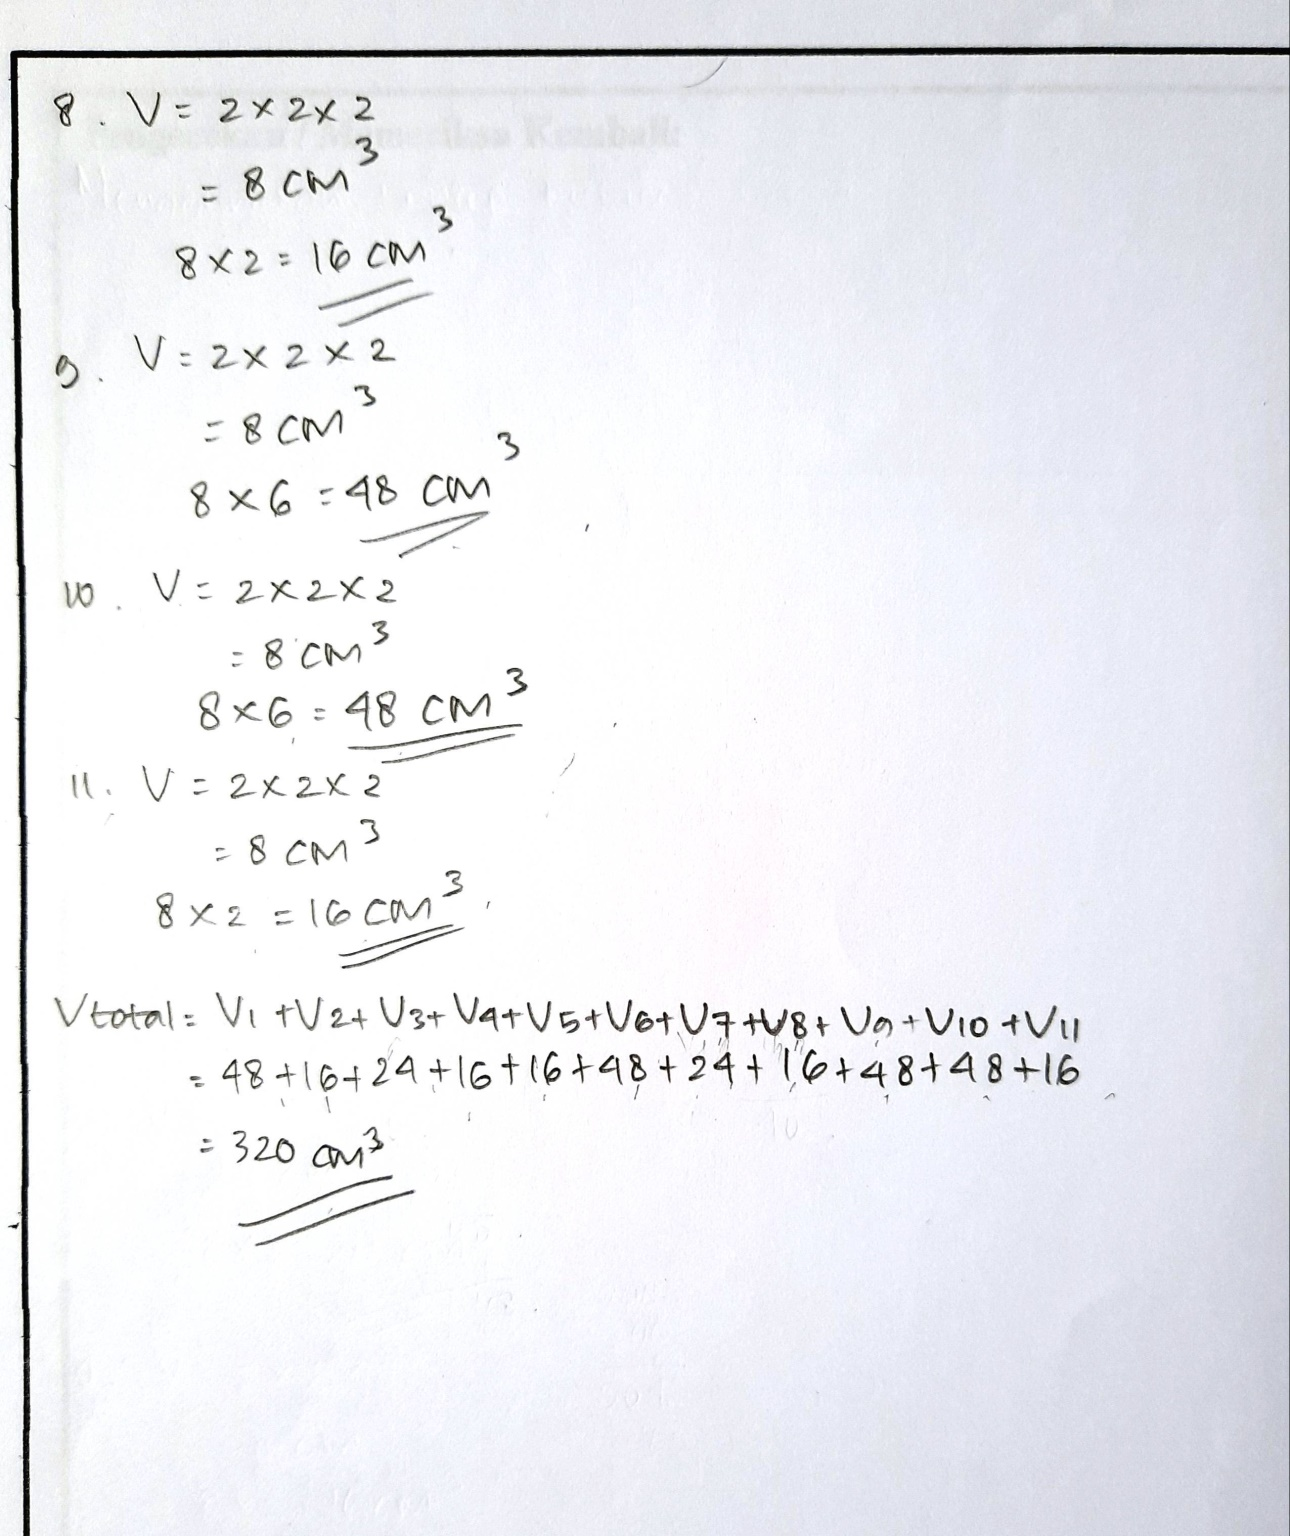 8. V = 2 × 2 × 2
= 8 cm³
8 × 2 = 16 cm³
9. V = 2 × 2 × 2
= 8 cm³
8 × 6 = 48 cm³
10. V = 2 × 2 × 2
= 8 cm³
8 × 6 = 48 cm³
11. V = 2 × 2 × 2
= 8 cm³
8 × 2 = 16 cm³
V total = V1 + V2 + V3 + V4 + V5 + V6 + V7 + V8 + V9 + V10 + V11
= 48 + 16 + 24 + 16 + 16 + 48 + 24 + 16 + 48 + 48 + 16
= 320 cm³